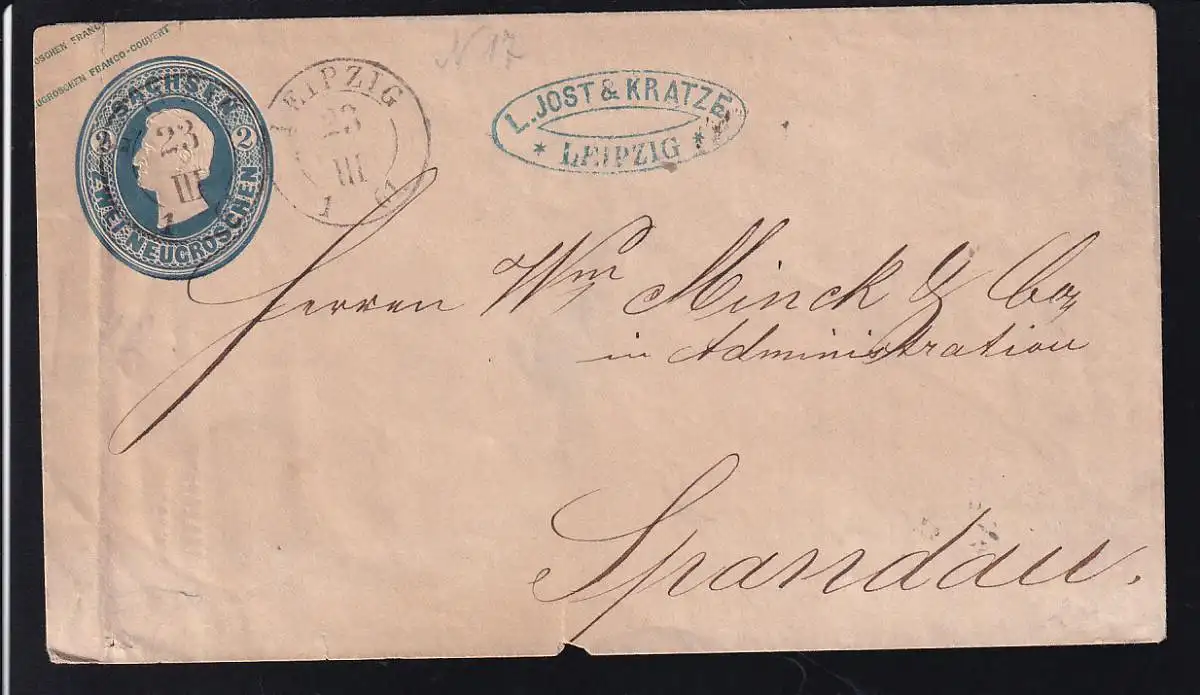 GROSCHEN FRANC
NEUGROSCHEN FRANCO-COUVERT
SACHSEN
2 2
ZWEI NEUGROSCHEN
23
III
1
LEIPZIG
23
III
1 61
N 17
L. JOST & KRATZE
* LEIPZIG *
Herren Wm Minck & Co,
in Administration
Spandau.